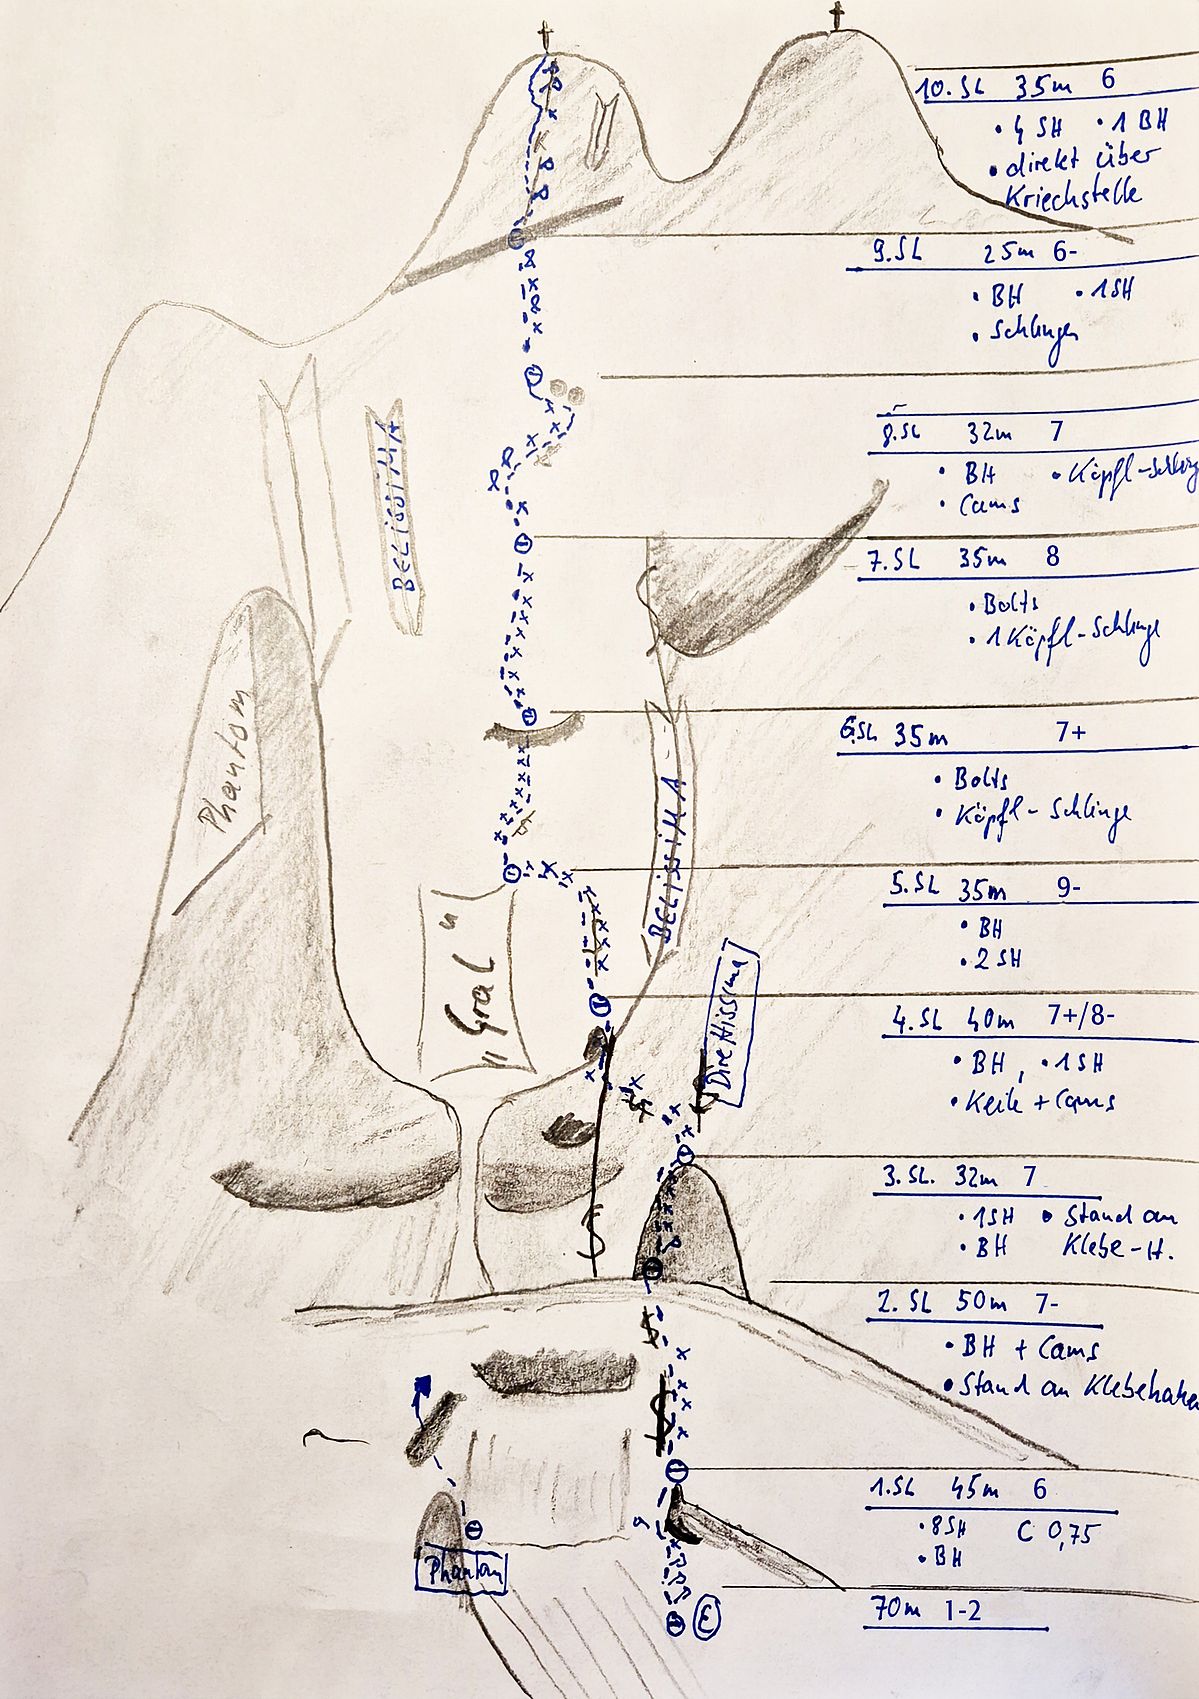 10. SL 35m 6
• 4 SH • 1 BH
• direkt über
Kriechstelle
9. SL 25m 6-
• BH • 1SH
• Schlingen
8. SL 32m 7
• BH • Köpfl-Schling
• Cams
BELISSIMA
7. SL 35m 8
• Bolts
• 1 Köpfl-Schlinge
Phantom
6. SL 35m 7+
• Bolts
• Köpfl-Schlinge
BELISSIMA
5. SL 35m 9-
• BH
• 2 SH
"Gral"
Direttissima
4. SL 40m 7+/8-
• BH, • 1SH
• Keile + Cams
3. SL. 32m 7
• 1SH • Stand an
• BH Klebe-H.
2. SL 50m 7-
• BH + Cams
• Stand an Klebehaken
1. SL 45m 6
• 8SH C 0,75
• BH
Phantom
E
70m 1-2